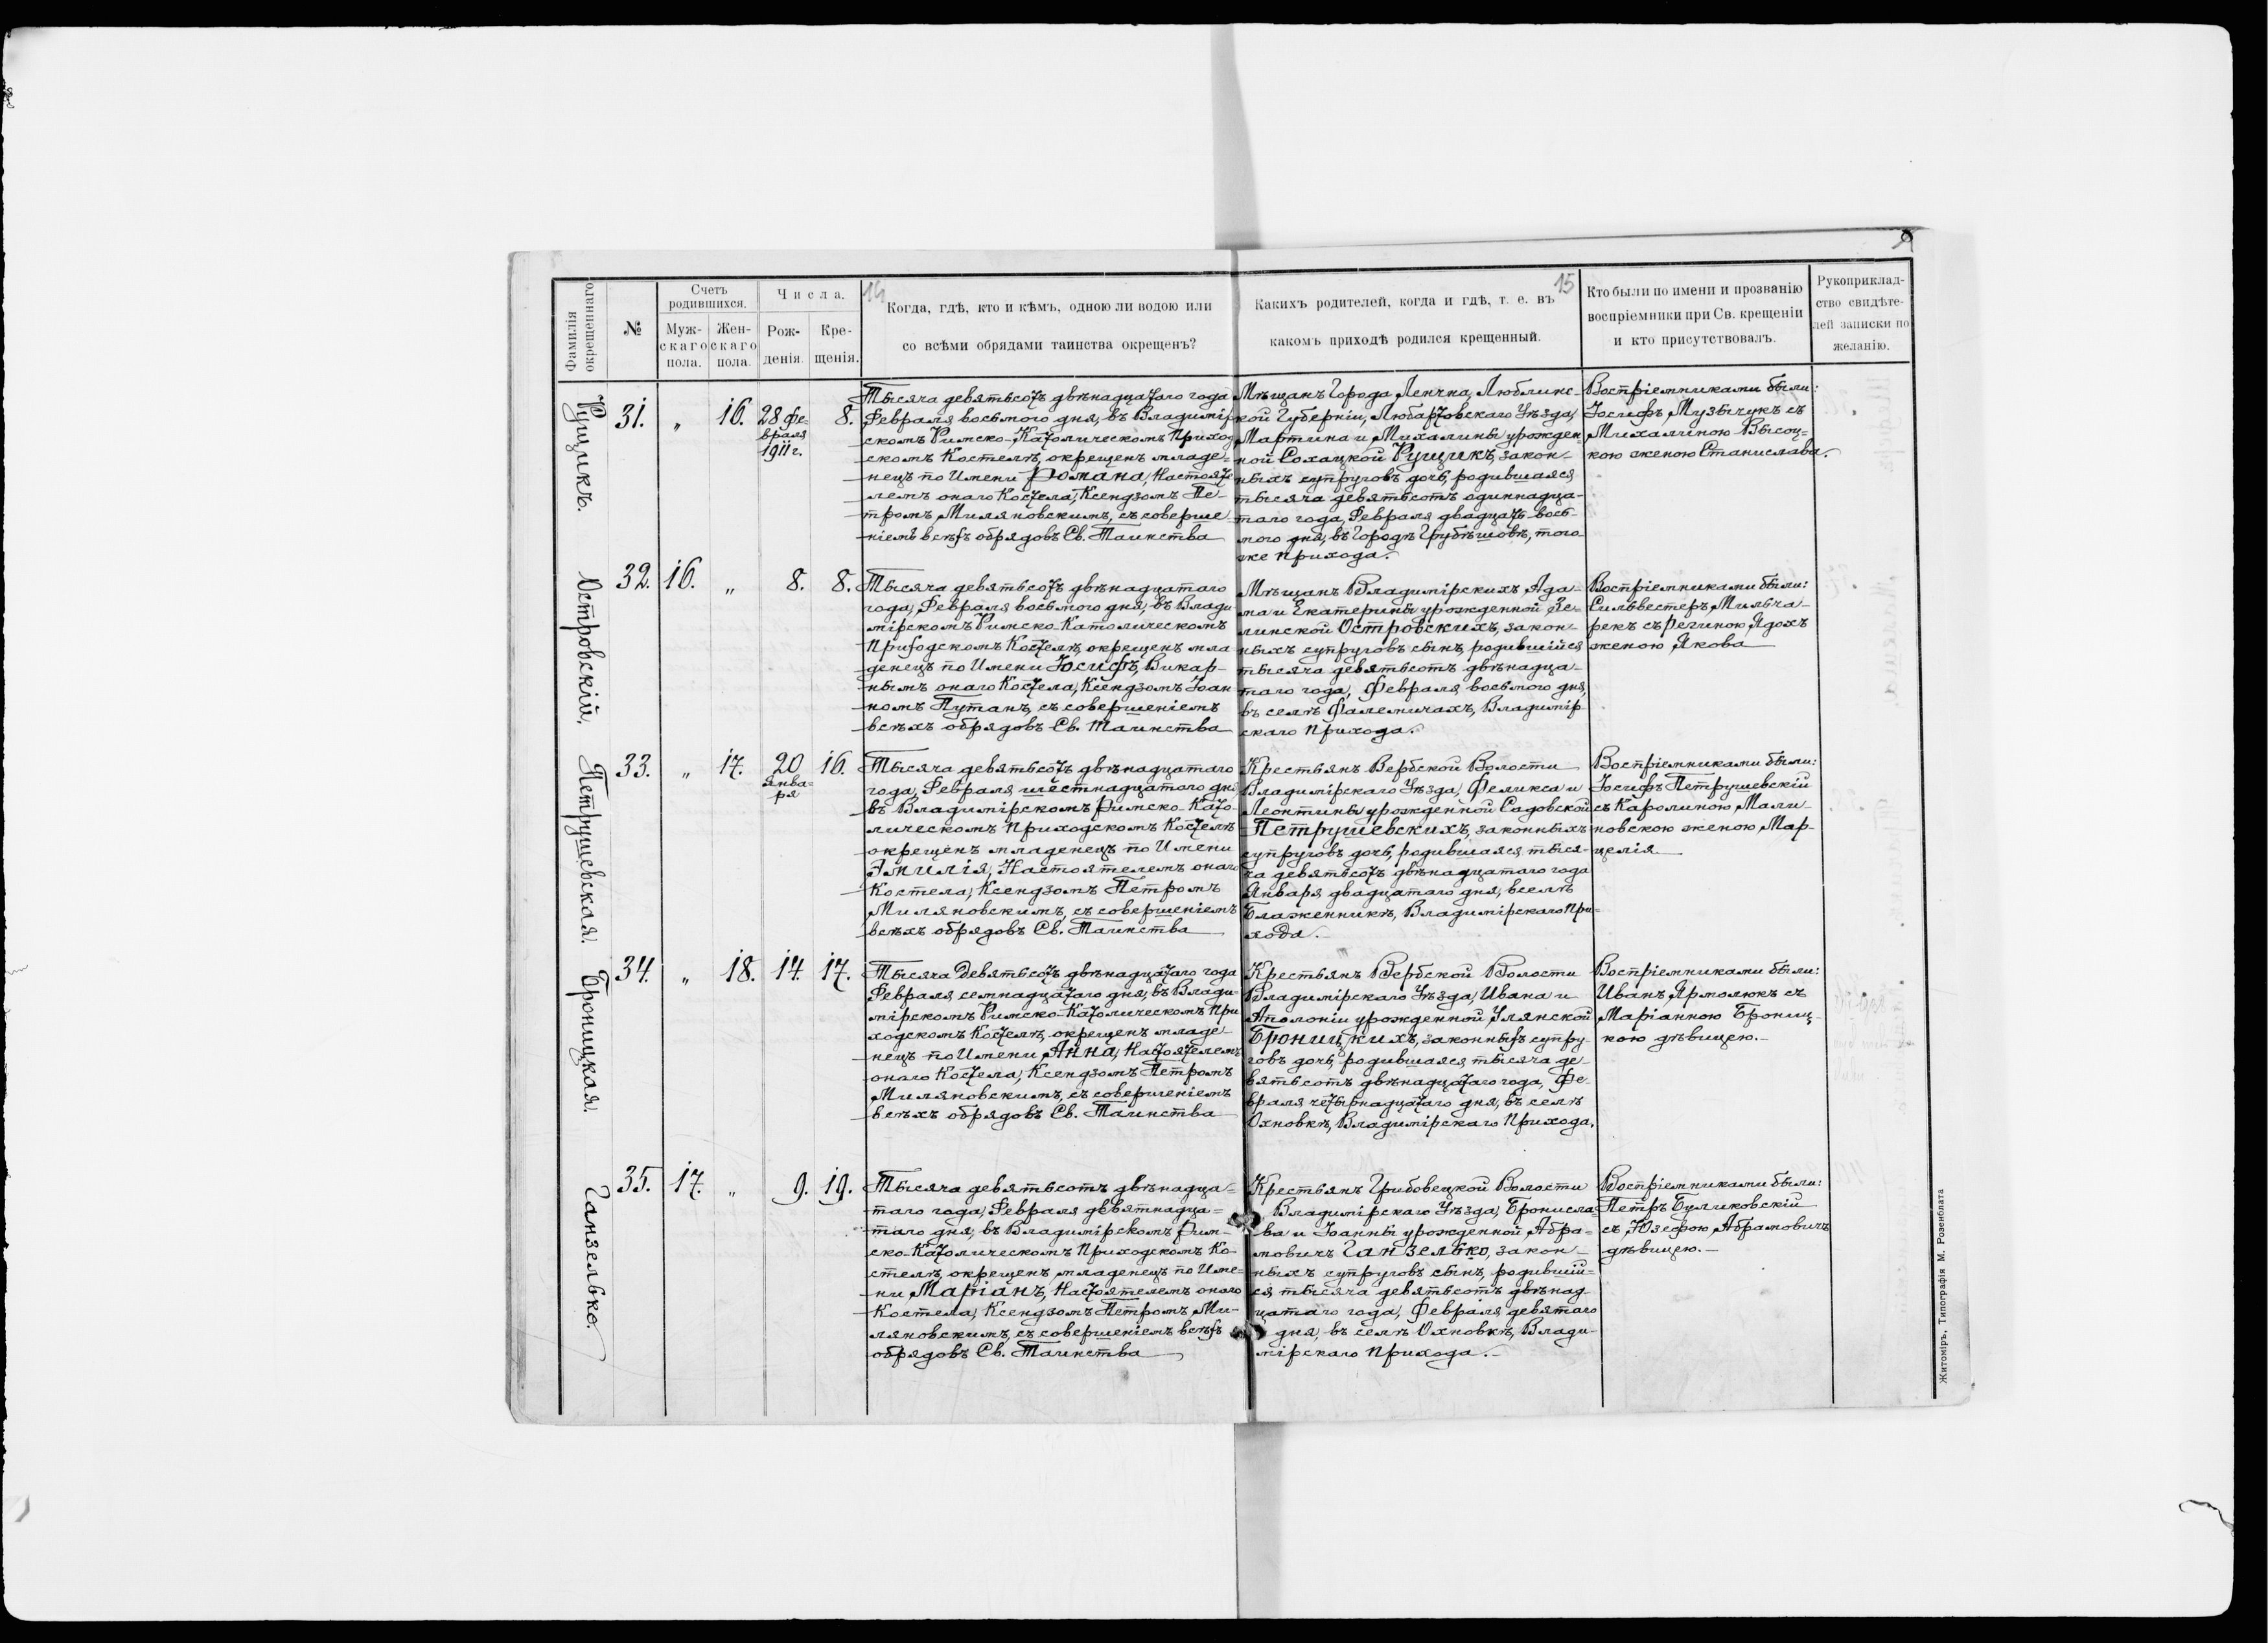 14
15
Фамилія окрещеннаго
№
Счетъ родившихся.
Муж-скаго пола.
Жен-скаго пола.
Числа.
Рож-денія.
Кре-щенія.
Когда, гдѣ, кто и кѣмъ, одною ли водою или
со всѣми обрядами таинства окрещенъ?
Какихъ родителей, когда и гдѣ, т. е. въ
какомъ приходѣ родился крещенный.
Кто были по имени и прозванію
воспріемники при Св. крещеніи
и кто присутствовалъ.
Рукоприклад-
ство свидѣте-
лей записки по
желанію.
Рущикъ.
31.
„
16.
28 фе-
враля
1911 г.
8.
Тысяча девятьсотъ двѣнадцатаго года
Февраля восьмого дня, въ Владимір
скомъ Римско-Католическомъ Приход
скомъ Костелѣ, окрещенъ младе-
нецъ по Имени Романа, Настояте
лемъ онаго Костела, Ксендзомъ Пе-
тромъ Миляновскимъ, съ соверше
ніемъ всѣхъ обрядовъ Св. Таинства
Мѣщанъ Города Ленчна, Люблинс-
кой Губерніи, Любартовскаго Уѣзда,
Мартина и Михалины урожден-
ной Сохацкой Рущикъ, закон-
ныхъ супруговъ дочь, родившаяся
тысяча девятьсотъ одиннадца-
таго года, Февраля двадцать вось-
мого дня, въ Городѣ Грубѣшовѣ, того
же прихода.
Воспріемниками были:
Іосифъ Музычукъ съ
Михалиною Высоц=
кою женою Станислава.
Островскій.
32.
16.
„
8.
8.
Тысяча девятьсотъ двѣнадцатаго
года, Февраля восьмого дня, въ Влади
мірскомъ Римско-Католическомъ
Приходскомъ Костелѣ, окрещенъ мла
денецъ по Имени Іосифъ, Викар-
нымъ онаго Костела, Ксендзомъ Іоан
номъ Путанъ, съ совершеніемъ
всѣхъ обрядовъ Св. Таинства
Мѣщанъ Владимірскихъ, Ада-
ма и Екатерины урожденной Зе-
линской Островскихъ, закон-
ныхъ супруговъ сынъ, родившійся
тысяча девятьсотъ двѣнадца-
таго года, Февраля восьмого дня,
въ селѣ Фалемичахъ, Владимір
скаго Прихода.
Воспріемниками были:
Сильвестеръ Мильча-
рекъ съ Региною Ядохъ
женою Якова
Петрушевская.
33.
„
17.
20
Янва=
ря
16.
Тысяча девятьсотъ двѣнадцатаго
года, Февраля шестнадцатаго дня
въ Владимірскомъ Римско-Като-
лическомъ Приходскомъ Костелѣ
окрещенъ младенецъ по Имени
Эмилія, Настоятелемъ онаго
Костела, Ксендзомъ Петромъ
Миляновскимъ, съ совершеніемъ
всѣхъ обрядовъ Св. Таинства
Крестьянъ Вербской Волости
Владимірскаго Уѣзда, Феликса и
Леонтины урожденной Садовской
Петрушевскихъ, законныхъ
супруговъ дочь, родившаяся тыся-
ча девятьсотъ двѣнадцатаго года
Января двадцатаго дня, вселѣ
Блаженникъ, Владимірскаго При=
хода.
Воспріемниками были:
Іосифъ Петрушевскій
съ Каролиною Мали-
новскою женою Мар-
целія
Броницкая.
34.
„
18.
14.
17.
Тысяча девятьсотъ двѣнадцатаго года
Февраля семнадцатаго дня, въ Влади-
мірскомъ Римско-Католическомъ При
ходскомъ Костелѣ, окрещенъ младе-
нецъ по Имени Анна, Настоятелемъ
онаго Костела, Ксендзомъ Петромъ
Миляновскимъ, съ совершеніемъ
всѣхъ обрядовъ Св. Таинства
Крестьянъ Вербской Волости
Владимірскаго Уѣзда, Ивана и
Аполоніи урожденной Улянской
Броницкихъ, законныхъ супру-
говъ дочь, родившаяся тысяча де-
вятьсотъ двѣнадцатаго года, Фе-
враля четырнадцатаго дня, въ селѣ
Охновкѣ, Владимірскаго Прихода.
Воспріемниками были:
Иванъ Ярмолюкъ съ
Маріанною Брониц-
кою дѣвицею.-
Ганзелько.
35.
17.
„
9.
19.
Тысяча девятьсотъ двѣнадца=
таго года, Февраля девятнадца=
таго дня, въ Владимірскомъ Рим-
ско-Католическомъ Приходскомъ Ко-
стелѣ, окрещенъ младенецъ по Име-
ни Маріанъ, Настоятелемъ онаго
Костела, Ксендзомъ Петромъ Ми-
ляновскимъ, съ совершеніемъ всѣхъ
обрядовъ Св. Таинства
Крестьянъ Грибовецкой Волости
Владимірскаго Уѣзда, Бронисла=
ва и Іоанны урожденной Абра-
мовичъ Ганзелько, закон-
ныхъ супруговъ сынъ, родившій-
ся тысяча девятьсотъ двѣнад
цатаго года, Февраля девятаго
дня, въ селѣ Охновкѣ, Влади-
мірскаго Прихода.-
Воспріемниками были:
Петръ Буликовскій
съ Юзефою Абрамовичъ
дѣвицею.-
Житоміръ, Типографія М. Розенблата